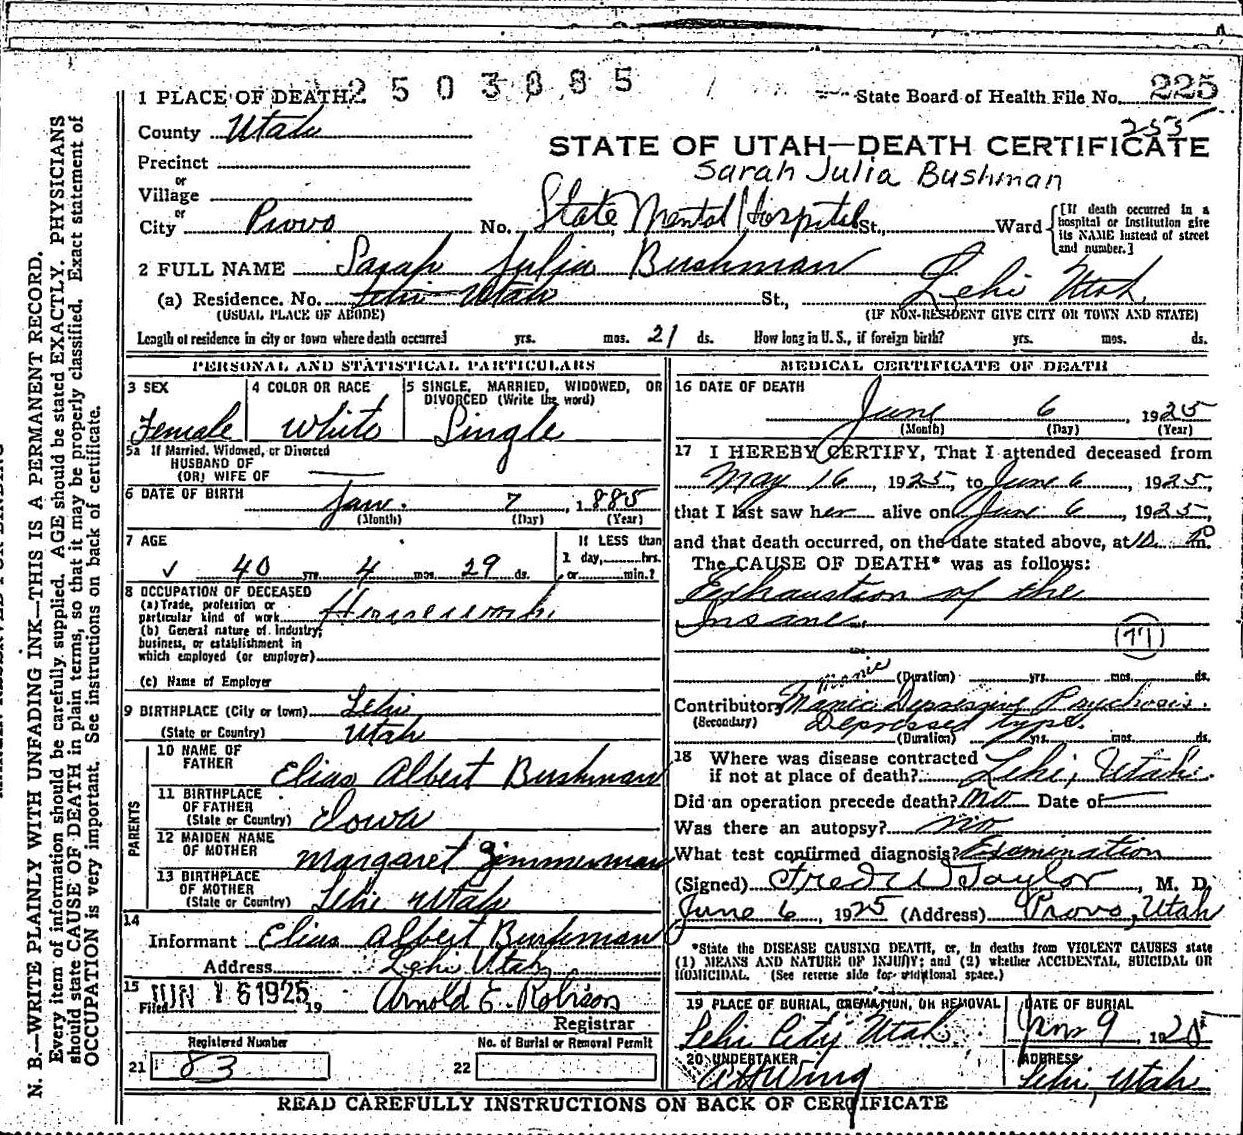 1 PLACE OF DEATH 2503885
State Board of Health File No. 225
255
County Utah
STATE OF UTAH—DEATH CERTIFICATE
Sarah Julia Bushman
Precinct
or
Village
or
City Provo No. State Mental Hospital St., Ward [If death occurred in a hospital or Institution give its NAME instead of street and number.]
2 FULL NAME Sarah Julia Bushman
(a) Residence. No. Lehi Utah St., Lehi Utah
(USUAL PLACE OF ABODE) (IF NON-RESIDENT GIVE CITY OR TOWN AND STATE)
Length of residence in city or town where death occurred yrs. mos. 21 ds. How long in U.S., if foreign birth? yrs. mos. ds.
PERSONAL AND STATISTICAL PARTICULARS
3 SEX
Female
4 COLOR OR RACE
White
5 SINGLE, MARRIED, WIDOWED, OR DIVORCED (Write the word)
Single
5a If Married, Widowed, or Divorced
HUSBAND OF
(OR) WIFE OF
6 DATE OF BIRTH Jan. 7, 1885
(Month) (Day) (Year)
7 AGE
40 yrs. 4 mos. 29 ds.
If LESS than
1 day, hrs.
or min.?
8 OCCUPATION OF DECEASED
(a) Trade, profession or
particular kind of work Housework
(b) General nature of Industry,
business, or establishment in
which employed (or employer)
(c) Name of Employer
9 BIRTHPLACE (City or town) Lehi
(State or Country) Utah
PARENTS
10 NAME OF
FATHER Elias Albert Bushman
11 BIRTHPLACE
OF FATHER
(State or Country) Iowa
12 MAIDEN NAME
OF MOTHER Margaret Zimmerman
13 BIRTHPLACE
OF MOTHER
(State or Country) Lehi Utah
14
Informant Elias Albert Bushman
Address Lehi Utah
15
Filed JUN 16 1925, 19 Arnold E. Robison
Registrar
Registered Number
21 83
No. of Burial or Removal Permit
22
MEDICAL CERTIFICATE OF DEATH
16 DATE OF DEATH
June 6, 1925
(Month) (Day) (Year)
17 I HEREBY CERTIFY, That I attended deceased from
May 16, 1925, to June 6, 1925,
that I last saw her alive on June 6, 1925,
and that death occurred, on the date stated above, at 10 P m.
The CAUSE OF DEATH* was as follows:
Exhaustion of the
Insane.
(77)
(Duration) yrs. mos. ds.
manic
Contributory Manic Depressive Psychosis.
(Secondary) Depressed type.
(Duration) yrs. mos. ds.
18 Where was disease contracted
if not at place of death? Lehi, Utah.
Did an operation precede death? No Date of
Was there an autopsy? no
What test confirmed diagnosis? Examination
(Signed) Fred W Taylor, M. D.
June 6, 1925 (Address) Provo, Utah
*State the DISEASE CAUSING DEATH, or, in deaths from VIOLENT CAUSES state
(1) MEANS AND NATURE OF INJURY; and (2) whether ACCIDENTAL, SUICIDAL OR
HOMICIDAL. (See reverse side for additional space.)
19 PLACE OF BURIAL, CREMATION, OR REMOVAL
Lehi City Utah
DATE OF BURIAL
June 9 1925
20 UNDERTAKER
A H Wing
ADDRESS
Lehi, Utah
READ CAREFULLY INSTRUCTIONS ON BACK OF CERTIFICATE
N. B.—WRITE PLAINLY WITH UNFADING INK—THIS IS A PERMANENT RECORD.
Every item of information should be carefully supplied. AGE should be stated EXACTLY. PHYSICIANS
should state CAUSE OF DEATH in plain terms, so that it may be properly classified. Exact statement of
OCCUPATION is very important. See instructions on back of certificate.